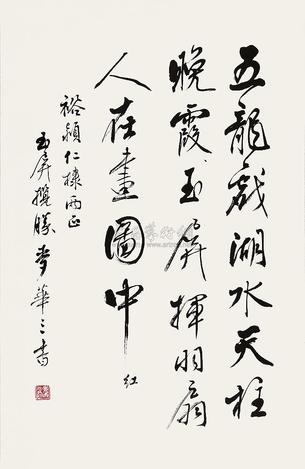 五龍戲湖水天柱
晚霞玉屏揮羽扇
人在畫圖中 紅
裕穎仁棣兩正
玉屏攬勝 麥華三書